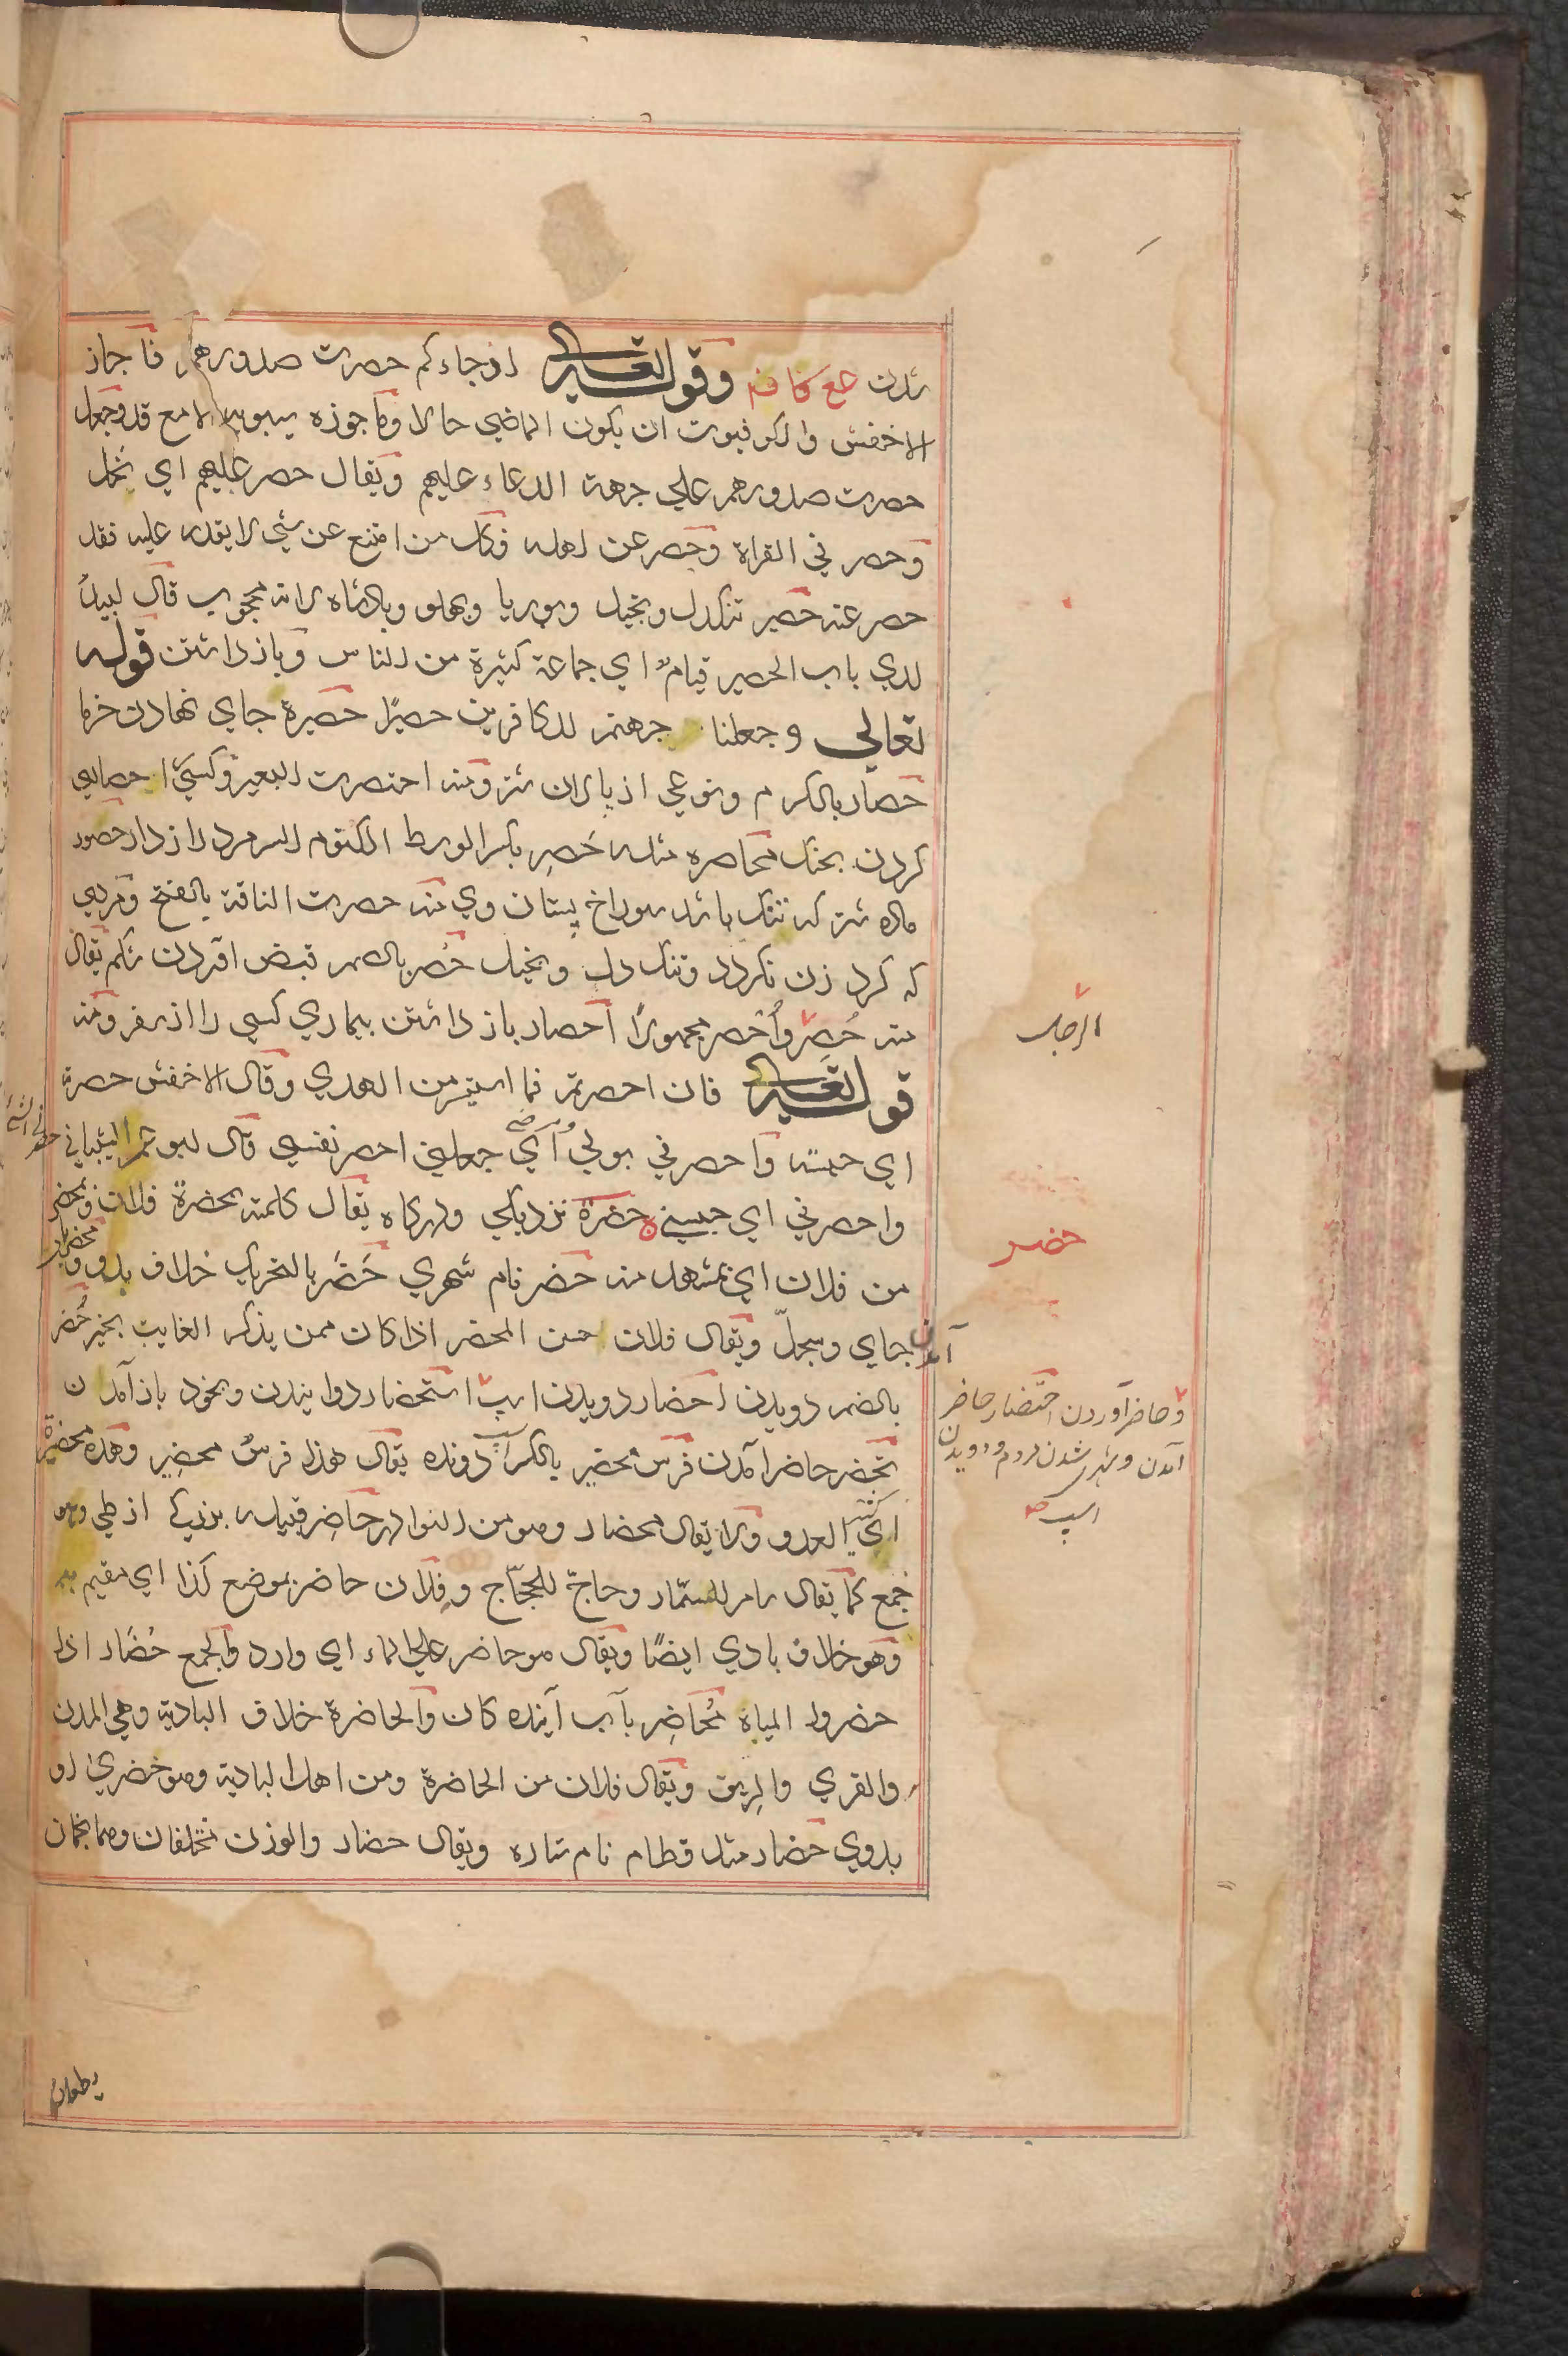 شدن وقوله تعالى او جاءكم حصرت صدورهم فاجاز
الاخفش والكوفيون ان يكون الماضي حالا وما جوزه سيبويه الا مع قد وجعل
حصرت صدورهم علي جهة الدعاء عليهم ويقال حصر عليهم اي بخل
وحصر في القراة وحصر عن اهله فكل من امتنع عن شي لا يقدر عليه فقد
حصر عنه حصير تنكدل وبخيل وبوريا وپهلو وپادشاه لانه محجوب قال لبيد
لدي باب الحصير قيام اي جماعة كثيرة من الناس وباز داشتن قوله
تعالي وجعلنا جهنم للكافرين حصيرًا حصيرة جاي نهادن خرما
حصار بالكسر م ونوعي از پالان شتر ومنه احتصرت البعير وكسي را حصاري
كردن بجنك محاصره مثله حَصِر بكسر الوسط الكتوم للسر مرد رازدار حصور
ماده شتر كه تنك باشد سوراخ پستان وي منه حصرت الناقة بالفتح ومردي
كه كرد زن نكردد وتنك دل وبخيل حُصر بالضم قبض افتادن شكم يقال
منه حُصِر وأُحصر مجهولًا احصار باز داشتن بيماري كسي را از سفر ومنه
الرجل
قوله تعالى فان احصرتم فما استيسر من الهدي وقال الاخفش حصرت
اي حبسته واحصرني بولي اي جعلني احصر نفسي قال ابو عمرو الشيباني
واحصرني اي حبسني حضرة نزديكي ودركاه يقال كلمته بحضرة فلان وبمحضر
حضر
من فلان اي بمشهد منه حضر نام شهري حَضَر بالتحريك خلاف بدو
آمدن بجاي وسجلّ ويقال فلان حسن المحضر اذا كان ممن يذكر الغايب بخير حُضر
بالضم دويدن احضار دويدن اسپ استحضار دوانيدن وبخود باز آمدن
وحاضر آوردن احتضار حاضر
آمدن وشهري شدن مردم ودويدن
اسپ
تحضر حاضر آمدن فرس محضير بالكسر دونده يقال هذا فرسٌ محضير وهذه محضيرة
اي كثير العدو ولا يقال محضار وهو من النوادر حاضِر قبيله بزرك از طي وهو
جمع كما يقال سامر للسمّار وحاجّ للحجّاج وفلان حاضر بموضع كذا اي مقيم به
وهو خلاف بادي ايضًا ويقال هو حاضر علي الماء اي وارد والجمع حُضّار اذا
حضروا المياه مُحاضِر بآب آينده كان والحاضرة خلاف البادية وهي المدن
والقري والريف ويقال فلان من الحاضرة ومن اهل البادية وهو حضريّ او
بدوي حضار مثل قطام نام ستاره ويقال حضار والوزن محلفان وهما نجمان
يطلعان